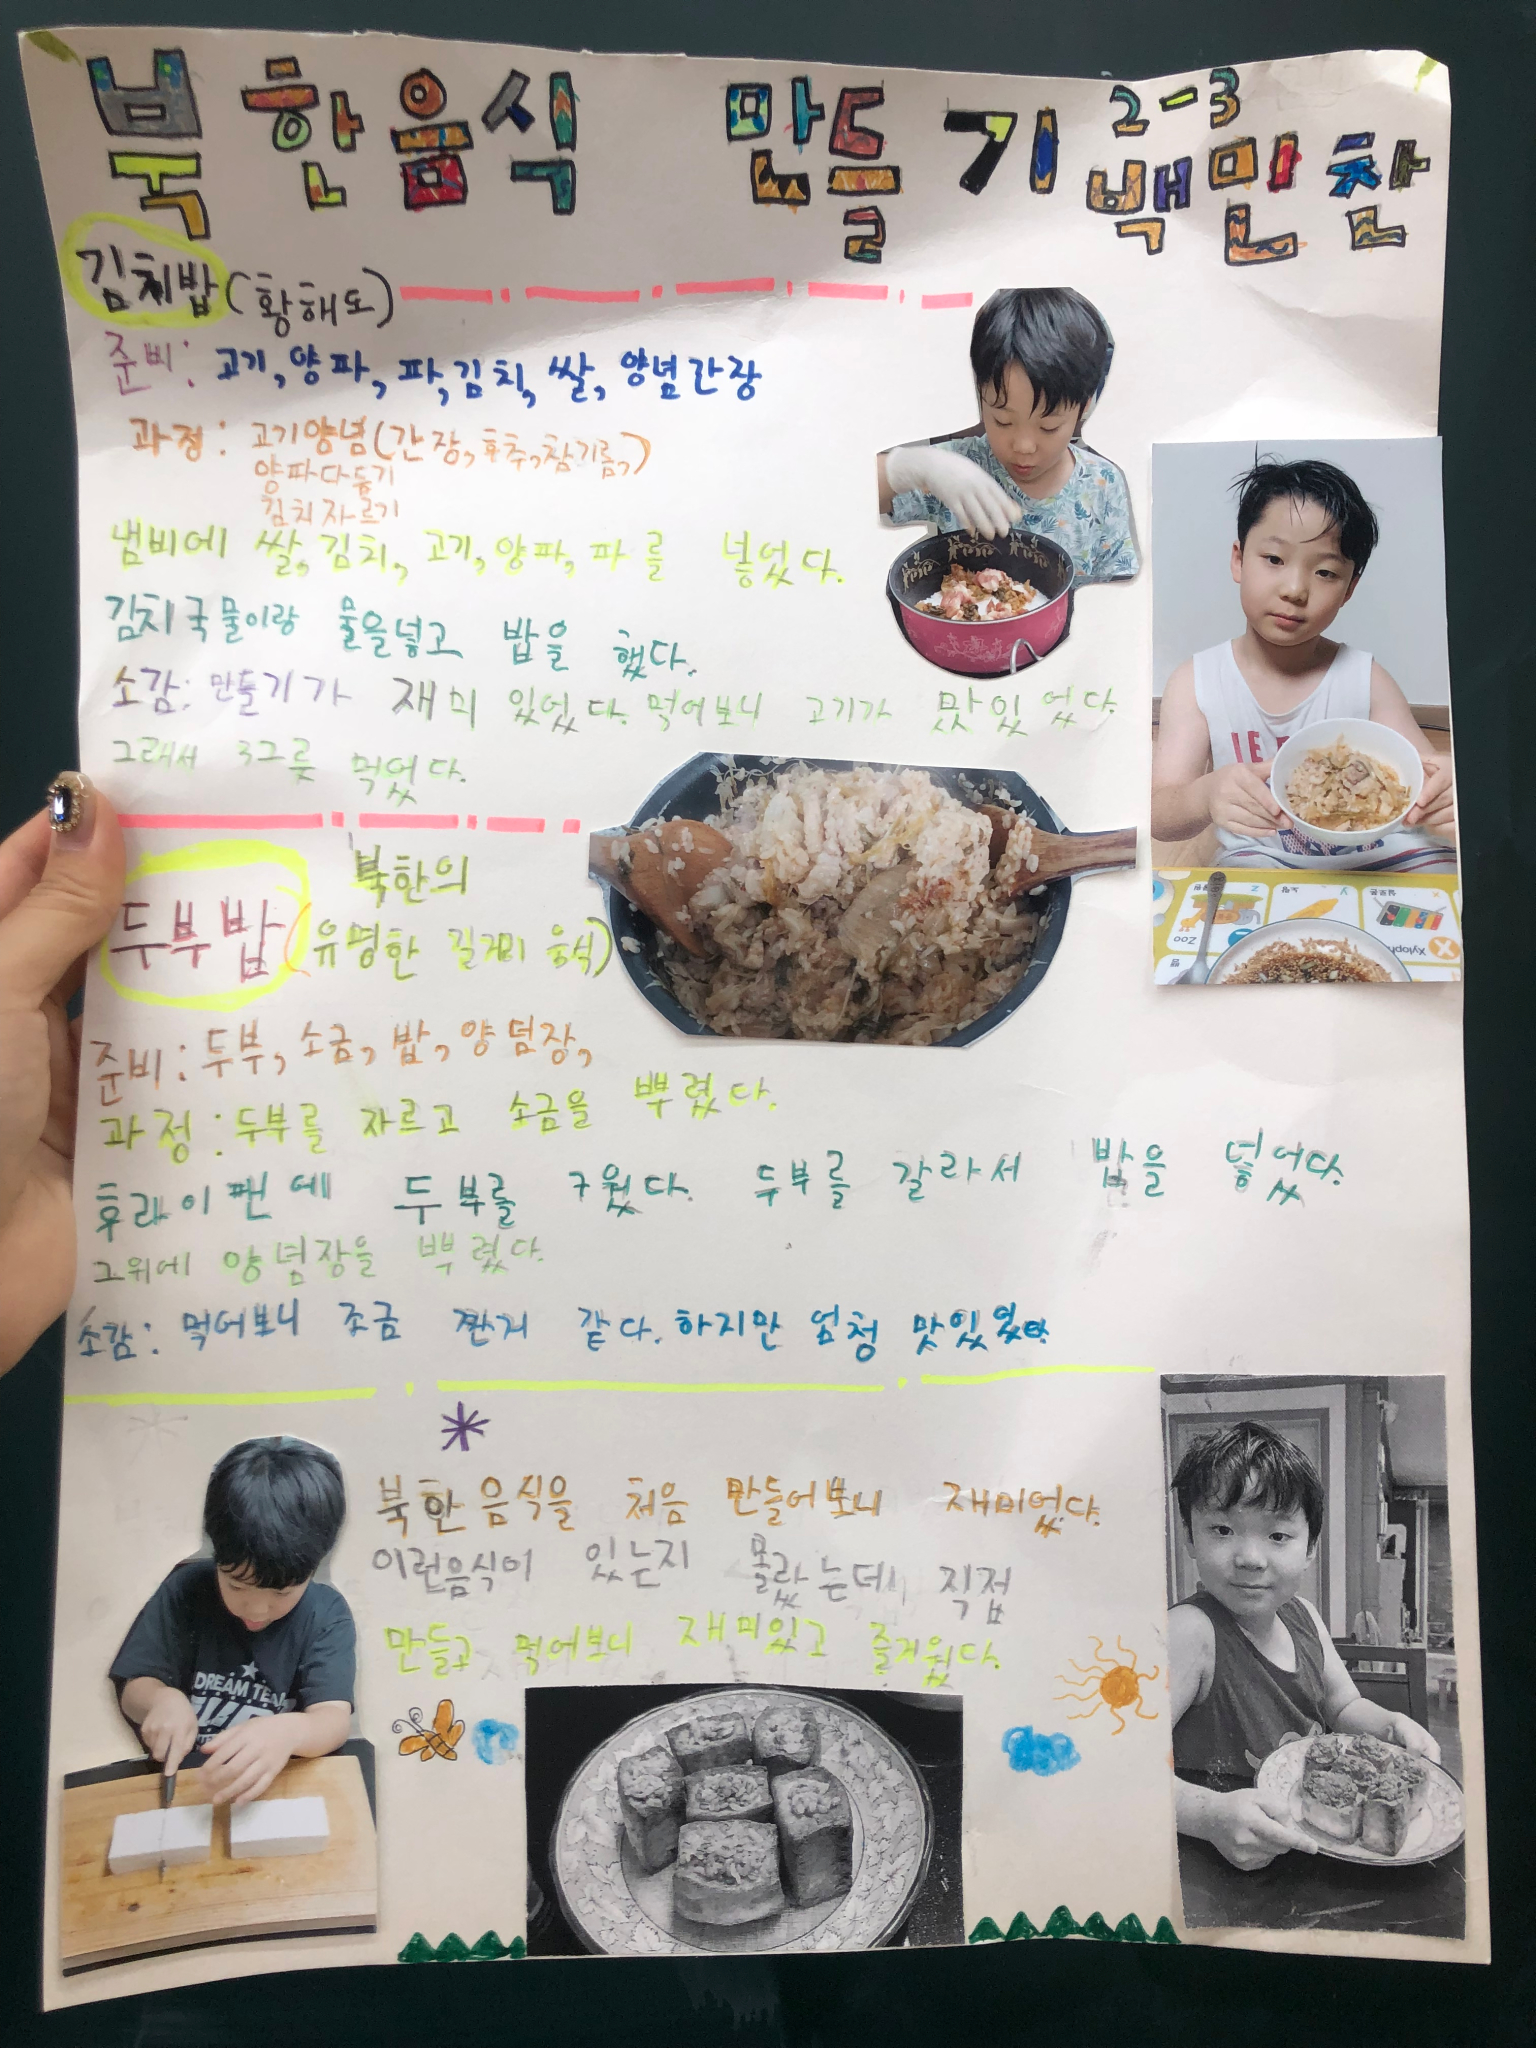 북한음식 만들기 2-3 백민찬
김치밥(황해도)
준비: 고기, 양파, 파, 김치, 쌀, 양념간장
과정: 고기양념(간장, 후추, 참기름,)
양파다듬기
김치자르기
냄비에 쌀, 김치, 고기, 양파, 파를 넣었다.
김치국물이랑 물을넣고 밥을 했다.
소감: 만들기가 재미 있었다. 먹어보니 고기가 맛있었다.
그래서 3그릇 먹었다.
두부밥(북한의
유명한 길거리 음식)
준비: 두부, 소금, 밥, 양념장,
과정: 두부를 자르고 소금을 뿌렸다.
후라이팬에 두부를 구웠다. 두부를 갈라서 밥을 넣었다.
그위에 양념장을 뿌렸다.
소감: 먹어보니 조금 짠거 같다. 하지만 엄청 맛있었다.
북한음식을 처음 만들어보니 재미었다.
이런음식이 있는지 몰랐는데 직접
만들고 먹어보니 재미있고 즐거웠다.
DREAM TEA
Zoo
Xyloph
X